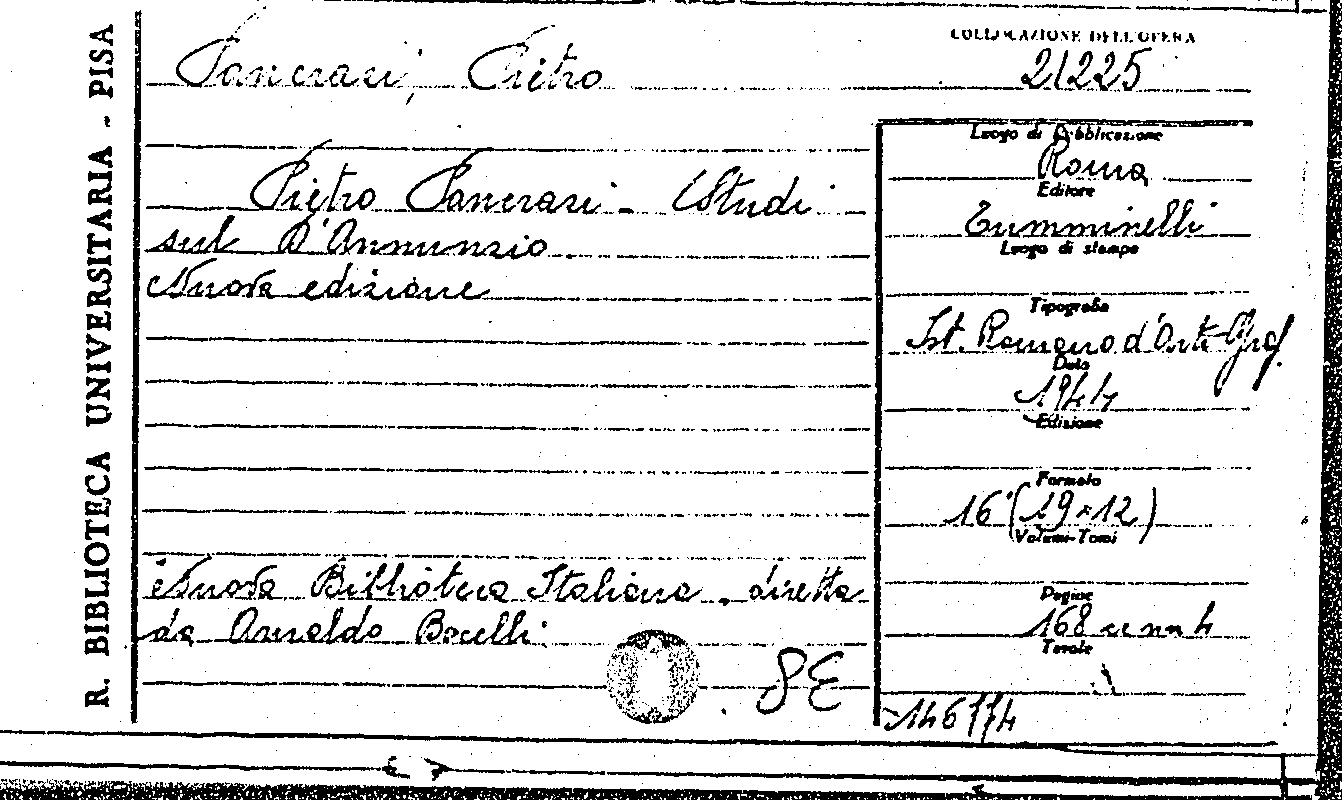 R. BIBLIOTECA UNIVERSITARIA - PISA
Pancrazi, Pietro
COLLOCAZIONE DELL'OPERA
21225
Pietro Pancrazi - Studi
sul D'Annunzio
Nuova edizione
Nuova Biblioteca Italiana, diretta
da Arnaldo Bocelli
8E
Luogo di Pubblicazione
Roma
Editore
Tumminelli
Luogo di stampa
Tipografia
Ist. Romano d'Arti Graf.
Data
1944
Edizione
Formato
16 (19×12)
Volumi-Tomi
Pagine
168 e nn 4
Tavole